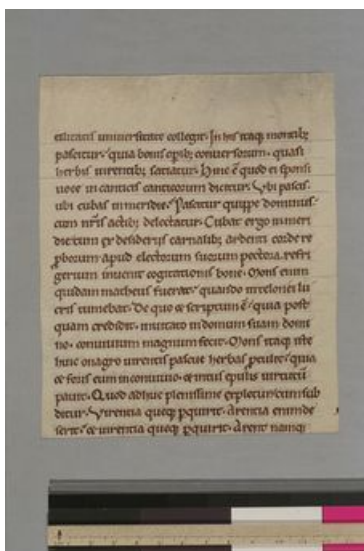 et iuxta universitate collegit. In his itaq; montib;
pascitur. quia bonis opib; conversorum. quasi
herbis virentib; satiatur. Hinc ē quod ei sponsi
voce in canticis canticorum dicitur. Ubi pascis.
ubi cubas in meridie. Pascitur quippe dominus.
cum nr̄is actib; delectatur. Cubat ergo in meri
die cum ex desideriis carnalib; ardenti corde re
proborum. apud electorum suorum pectora. refri
gerium invenit cogitationis bone. Mons enim
quidam matheus fuerat. quando in telonei lu
cris tumebat. De quo et scriptum ē. quia post
quam credidit. invitato in domum suam domi
no. convivium magnum fecit. Mons itaq; iste
huic onagro virentis pascue herbas protulit. quia
et foris eum in convivio. et intus epulis virtutū
pavit. Quod adhuc plenissime expletur cum sub
ditur. Virentia queq; pquirit. Arentia enim de
serit. et virentia queq; pquirit. Arent namq;